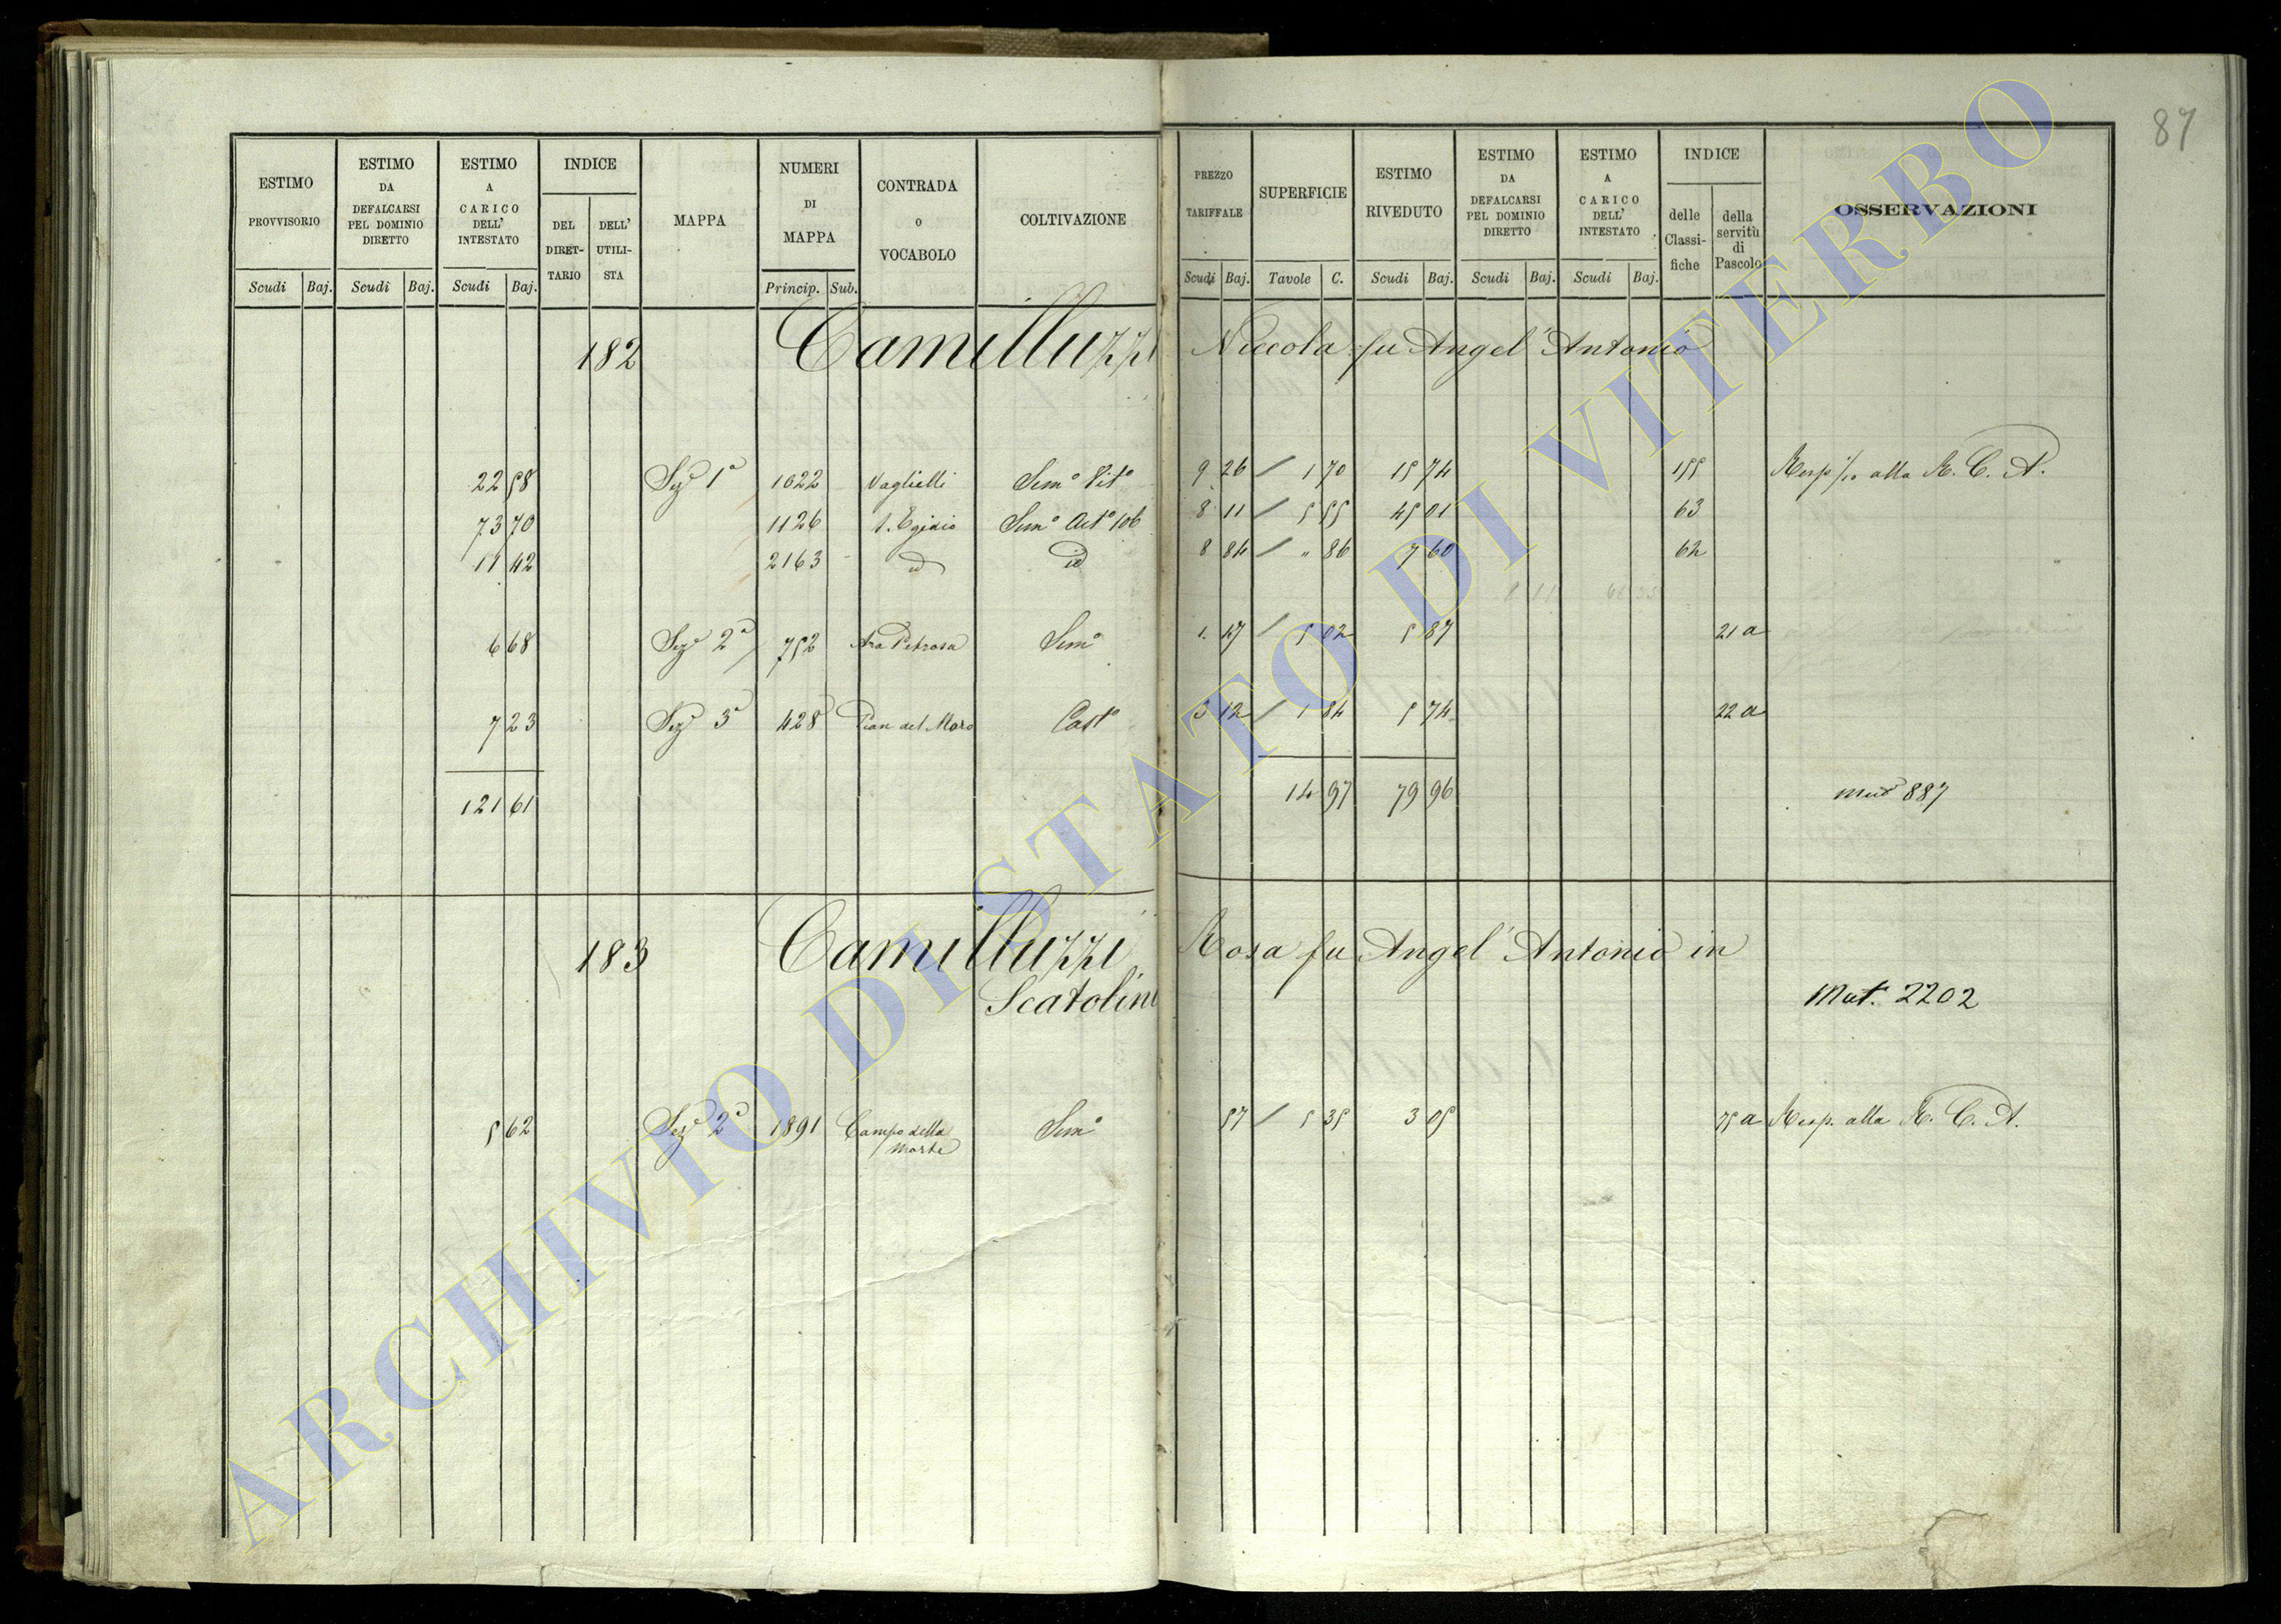 87
ESTIMO PROVVISORIO | ESTIMO DA DEFALCARSI PEL DOMINIO DIRETTO | ESTIMO A CARICO DELL' INTESTATO | INDICE | MAPPA | NUMERI DI MAPPA | CONTRADA o VOCABOLO | COLTIVAZIONE | PREZZO TARIFFALE | SUPERFICIE | ESTIMO RIVEDUTO | ESTIMO DA DEFALCARSI PEL DOMINIO DIRETTO | ESTIMO A CARICO DELL' INTESTATO | INDICE | OSSERVAZIONI
DEL DIRETTARIO | DELL' UTILISTA | delle Classifiche | della servitù di Pascolo
Scudi | Baj. | Scudi | Baj. | Scudi | Baj. | Princip. | Sub. | Scudi | Baj. | Tavole | C. | Scudi | Baj. | Scudi | Baj. | Scudi | Baj.
182 Camilluzzi Niccola fu Angel'Antonio
22 58 Sez.e 1a 1022 Vaglielli Sem.o Vit.o 9 26 / 1 70 15 74 155 Resp. 1/10 alla R. C. A.
73 70 1126 S. Egidio Sem.o 8 11 / 5 55 45 01 63
11 42 2163 id id 8 84 / " 86 7 60 62
6 68 Sez.e 2a 752 Ara Petrosa Sem.o 1 17 / 5 02 5 87 21 a
7 23 Sez.e 3a 428 Pian del Moro Cast.o 3 12 / 1 84 5 74 22 a
121 61 14 97 79 96 Mut 887
183 Camilluzzi Rosa fu Angel'Antonio in
Scatolini
Mut. 2202
5 62 Sez.e 2a 1891 Campo della Morte Sem.o 57 / 5 35 3 05 75 a Resp. alla R. C. A.
ARCHIVIO DI STATO DI VITERBO